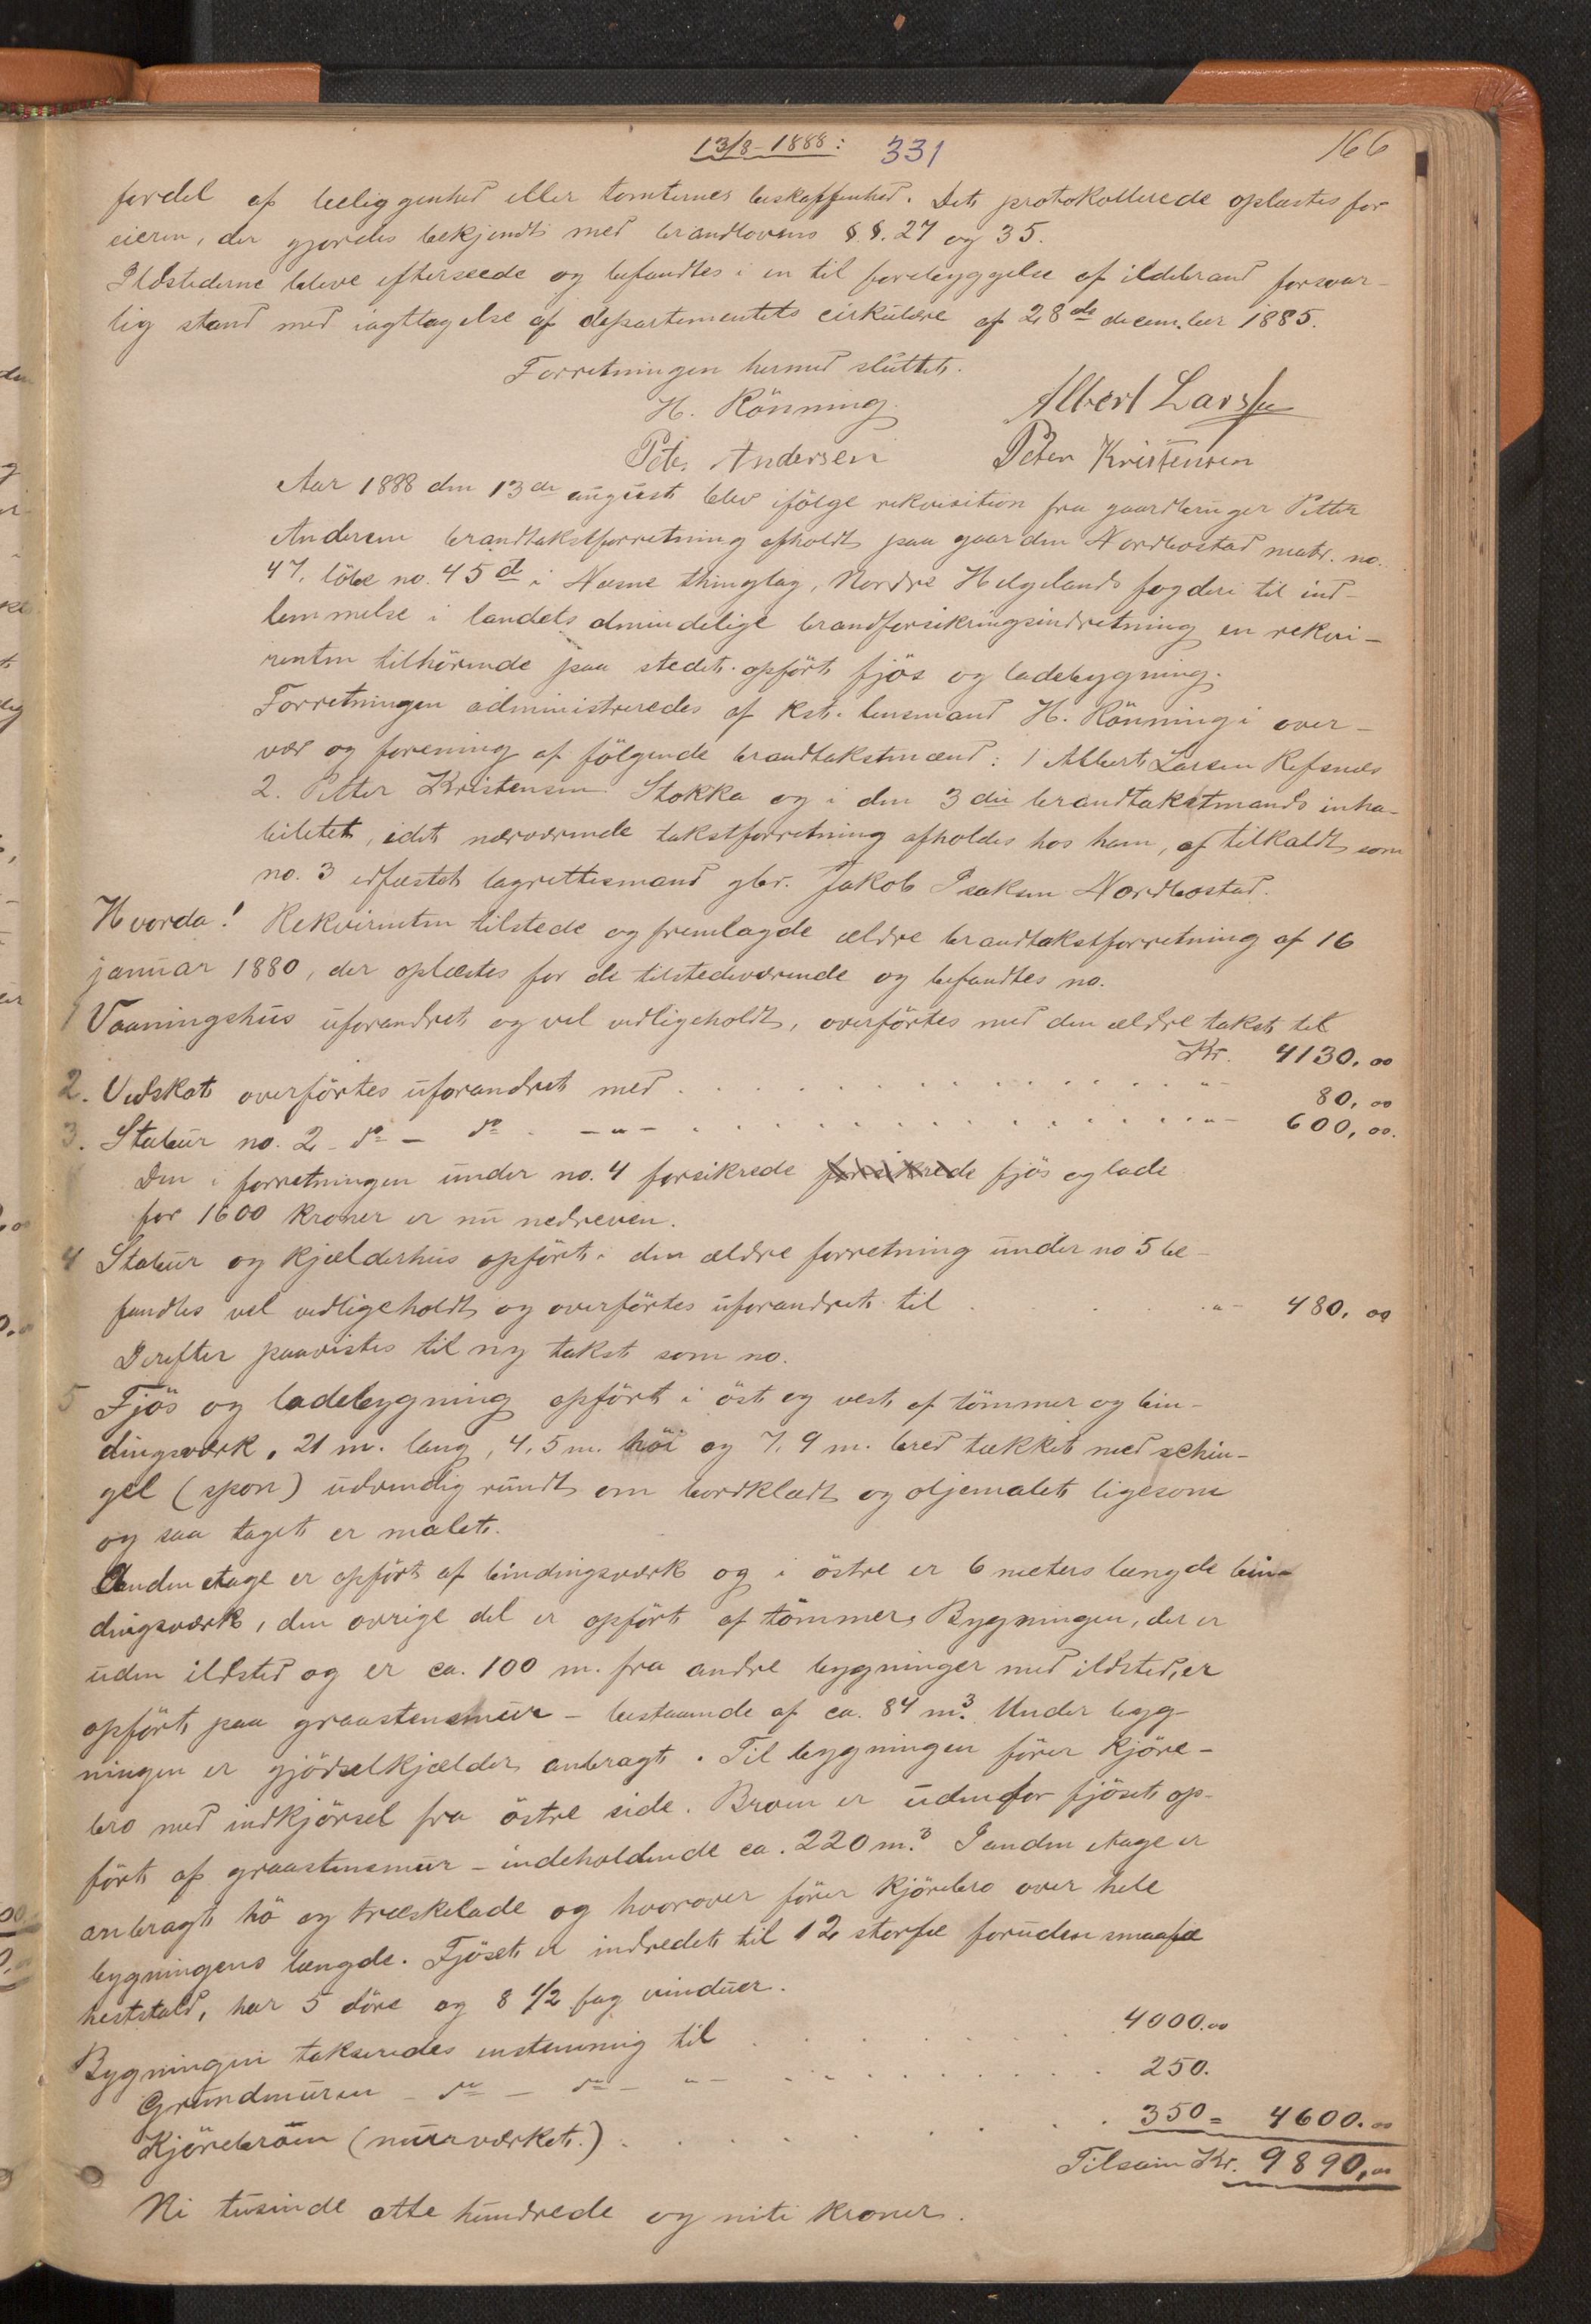 13/8-1888: 331 166
fordel af beliggenhed eller tomternes beskaffenhed. Det protokollerede oplæstes for
eieren, der gjordes bekjendt med brandlovens §.§. 27 og 35.
Ildstederne bleve efterseede og befandtes i en til forebyggelse af ildebrand forsvar-
lig stand med iagttagelse af departementets cirkulære af 28de december 1885.
Forretningen hermed sluttet.
H. Rönning. Albert Larsen
Pete. Andersen Peter Kristensen
Aar 1888 den 13de august blev ifölge rekvisition fra gaardbruger Petter
Andersen brandtakstforretning afholdt paa gaarden Nordbostad matr. no.
47, löbe no. 45d i Næsne thinglag, Nordre Helgelands fogderi til ind-
lemmelse i landets almindelige brandforsikringsindretning en rekvi-
renten tilhörende paa stedet opfört fjös og ladebygning.
Forretningen administreredes af kst. lensmand H. Rönning i over-
vær og forening af fölgende brandtakstmænd: 1 Albert Larsen Refsnæs
2. Petter Kristensen Stokka og i den 3die brandtakstmands inha-
bilitet, idet nærværende takstforretning afholdes hos ham, af tilkaldt som
no. 3 edfæstet lagrettesmand gbr. Jakob Isaksen Nordbostad.
Hvorda! Rekvirenten tilstede og fremlagde ældre brandtakstforretning af 16
januar 1880, der oplæstes for de tilstedeværende og befandtes no.
1 Vaaningshus uforandret og vel vedligeholdt, overförtes med den ældre takst til
Kr. 4130,00
2. Vedskot overförtes uforandret med . . . . . . . . . -"- 80,00
3. Stabur no. 2 do - do - -"- . . . . . . . . . -"- 600,00.
Den i forretningen under no. 4 forsikrede forsikrede fjös og lade
for 1600 kroner er nu nedreven.
4 Stabur og kjælderhus opfört i den ældre forretning under no 5 be-
fandtes vel vedligeholdt og overförtes uforandret til . . . -"- 480,00
Derefter paavistes til ny takst som no.
5 Fjös og ladebygning opfört i öst og vest af tömmer og bin-
dingsværk, 21 m. lang, 4,5 m. höi og 7,9 m. bred tækket med schin-
gel (spon) udvendig rundt om bordklædt og oljemalet ligesom
og saa taget er malet.
Anden etage er opfört af bindingsværk og i östre er 6 meters længde bin-
dingsværk, den övrige del er opfört af tömmer. Bygningen, der er
uden ildsted og er ca. 100 m. fra andre bygninger med ildsted, er
opfört paa graastensmur - bestaaende af ca. 84 m.3 Under byg-
ningen er gjödselkjælder anbragt. Til bygningen förer kjöre-
bro med indkjörsel fra östre side. Broen er udenfor fjöset op-
fört af graastensmur - indeholdende ca. 220 m.3 I anden etage er
anbragt hö og træskelade og hvorover förer kjörebro over hele
bygningens længde. Fjöset er indredet til 12 storfæ foruden smaafæ
heststald, har 5 döre og 8 1/2 fag vinduer.
Bygningen takseredes enstemmig til . . . . . . 4000.00
Grundmuren - do - do - "- . . . . . . . . 250.
Kjörebroen (murværket.) . . . . . . . 350 = 4600.00
Tilsam Kr. 9890,00
Ni tusinde otte hundrede og niti kroner.